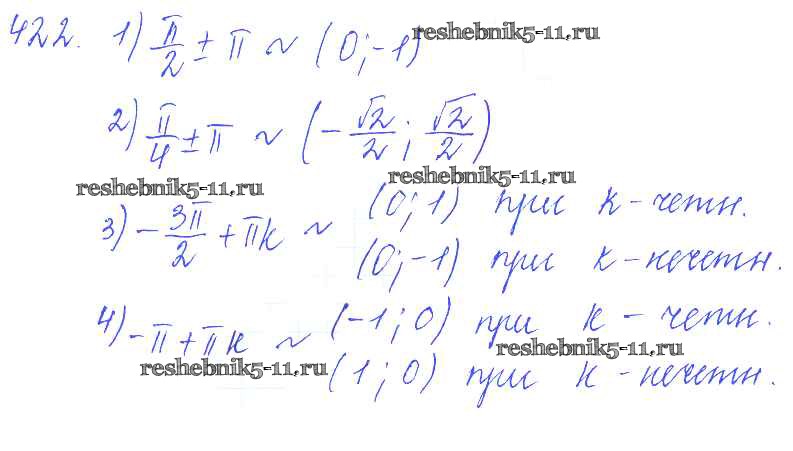 422. 1) π/2 ± π ~ (0; -1)
reshebnik5-11.ru
2) π/4 ± π ~ (-√2/2; √2/2)
reshebnik5-11.ru
reshebnik5-11.ru
3) -3π/2 + πk ~ (0; 1) при k - четн.
(0; -1) при k - нечетн.
4) -π + πk ~ (-1; 0) при k - четн.
reshebnik5-11.ru
reshebnik5-11.ru
(1; 0) при k - нечетн.